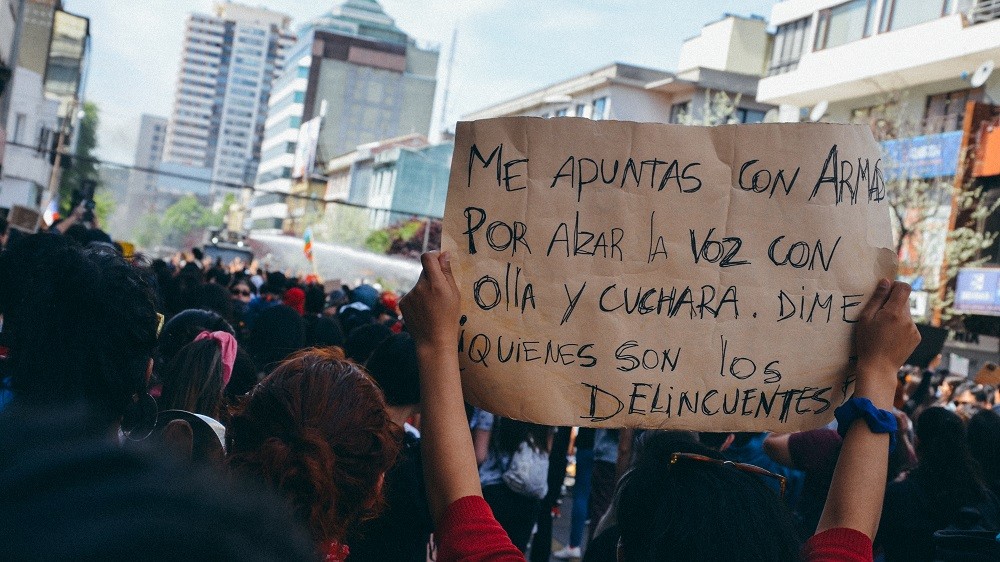 ME APUNTAS CON ARMAS
POR AlZAR lA VOZ CON
OllA Y CUCHARA. DIME
¿QUIENES SON los
DELINCUENTES?